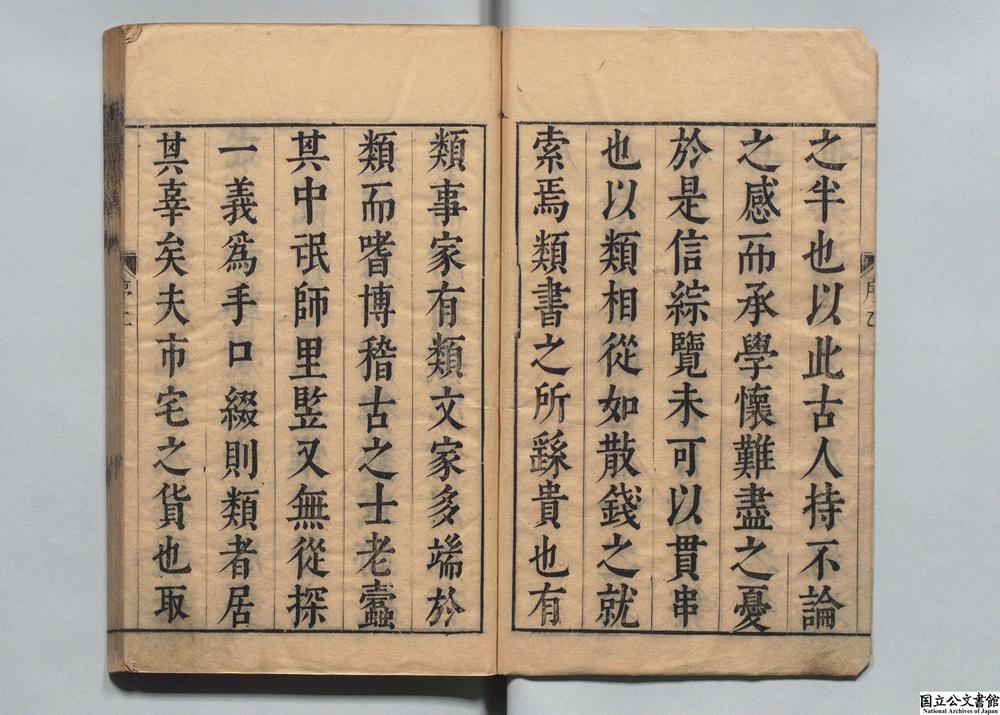 之半也以此古人持不論
之感而承學懷難盡之憂
於是信綜覽未可以貫串
也以類相從如散錢之就
索焉類書之所繇貴也有
類事家有類文家多端於
類而嗜博稽古之士老蠹
其中氓師里豎又無從探
一義爲手口綴則類者居
其辜矣夫市宅之貨也取
国立公文書館
National Archives of Japan